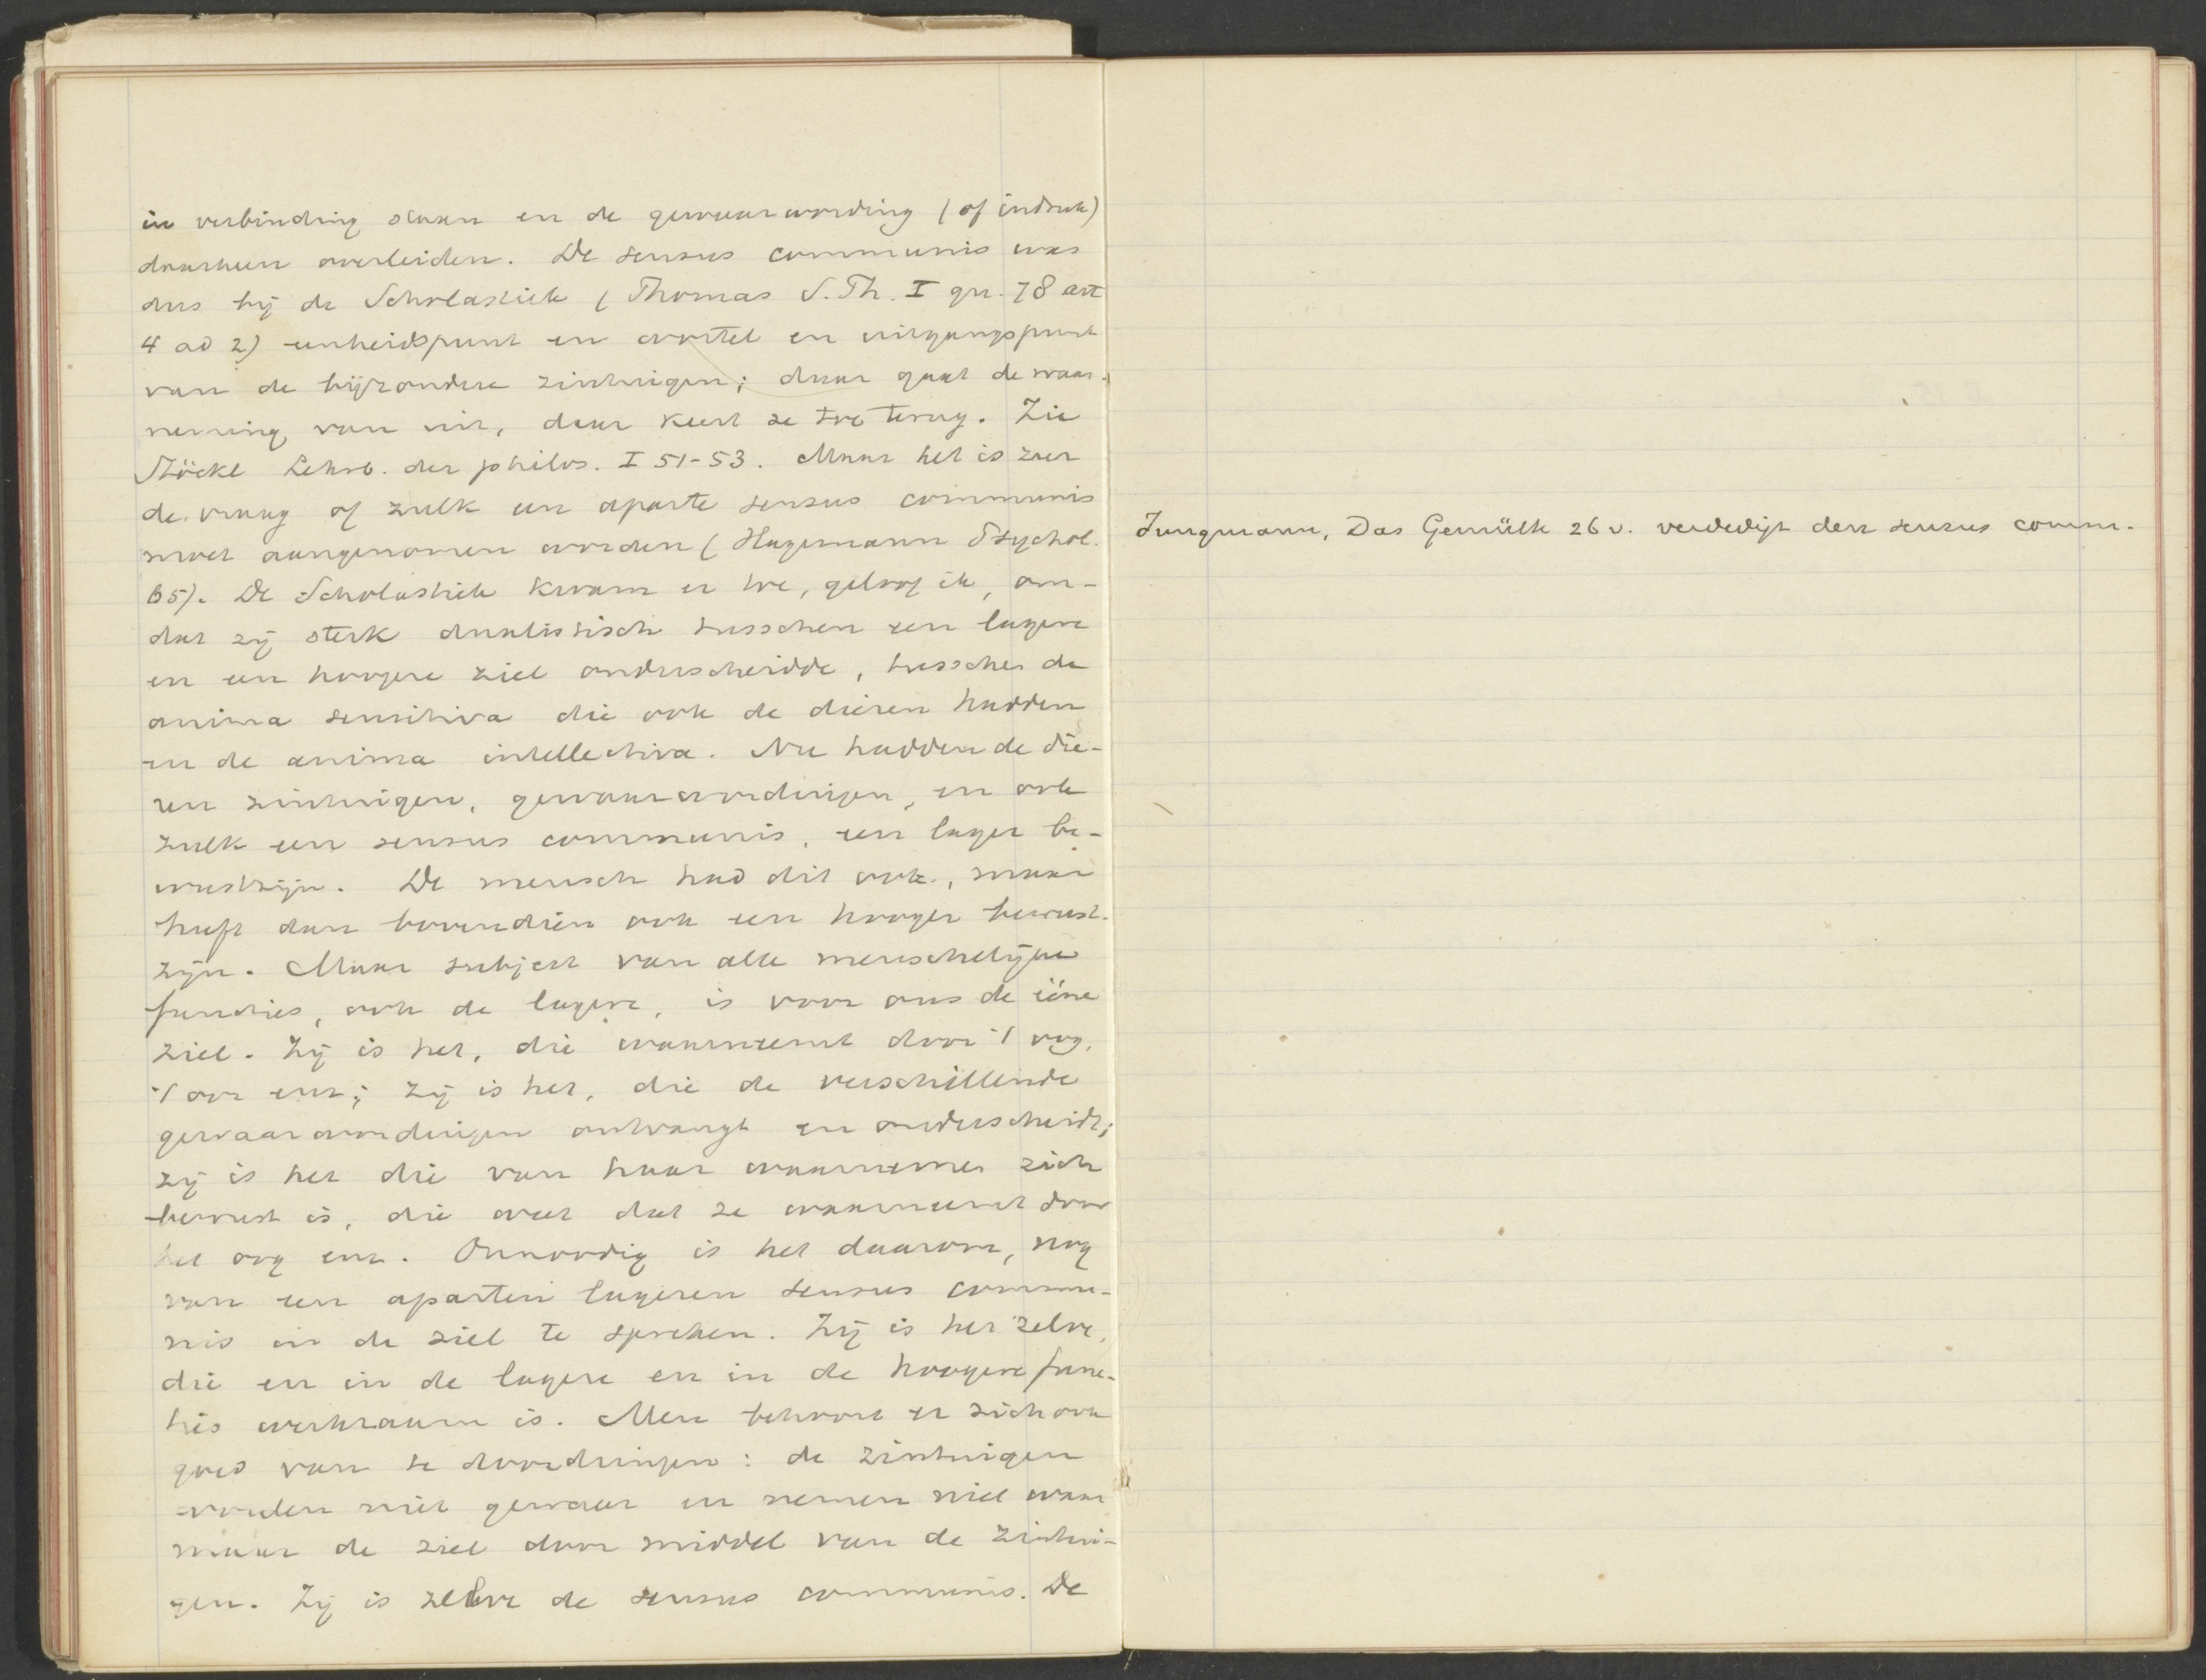 in verbinding staan en de gewaarwording (of indruk)
daarheen overleiden. De sensus communis was
dus bij de Scholastiek (Thomas S. Th. I qu. 78 art
4 ad 2) eenheidspunt en wortel en uitgangspunt
van de bijzondere zintuigen; daar gaat de waar-
neming van uit, daar keert ze toe terug. Zie
Stöckl Lehrb. der philos. I 51-53. Maar het is zeer
de vraag of zulk een aparte sensus communis
moet aangenomen worden (Hagemann Psychol.
65). De Scholastiek kwam er toe, geloof ik, om-
dat zij sterk dualistisch tusschen een lagere
en een hoogere ziel onderscheidde, tusschen de
anima sensitiva die ook de dieren hadden
en de anima intellectiva. Nu hadden de die-
ren zintuigen, gewaarwordingen, en ook
zulk een sensus communis, een lager be-
wustzijn. De mensch had dit ook, maar
heeft dan bovendien ook een hooger bewust-
zijn. Maar subject van alle menschelijke
functies, ook de lagere, is voor ons de ééne
ziel. Zij is het, die waarneemt door 't oog,
't oor enz; zij is het, die de verschillende
gewaarwordingen ontvangt en onderscheidt;
zij is het die van haar waarnemen zich
bewust is, die weet dat ze waarneemt door
het oog enz. Onnoodig is het daarom, nog
van een aparten lageren sensus commu-
nis in de ziel te spreken. Zij is het zelve,
die en in de lagere en in de hoogere func-
ties werkzaam is. Men behoort er zich ook
goed van te doordringen: de zintuigen
worden niet gewaar en nemen niet waar
maar de ziel door middel van de zintui-
gen. Zij is zelve de sensus communis. De
Jungmann, Das Gemüth 26 v. verdedigt den sensus comm.